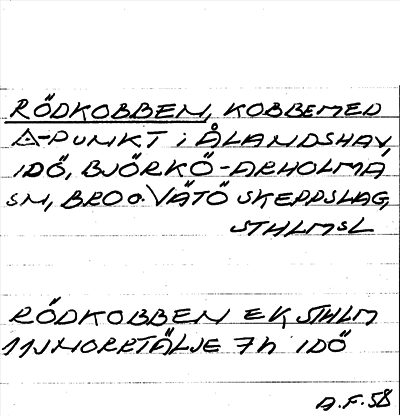 RÖDKOBBEN, KOBBE MED
△-PUNKT i ÅLANDSHAV,
IDÖ, BJÖRKÖ-ARHOLMA
SN, BRO o. VÄTÖ SKEPPSLAG,
STHLMS L
RÖDKOBBEN EK, STHLM
11J NORRTÄLJE 7h IDÖ
A.F. 58